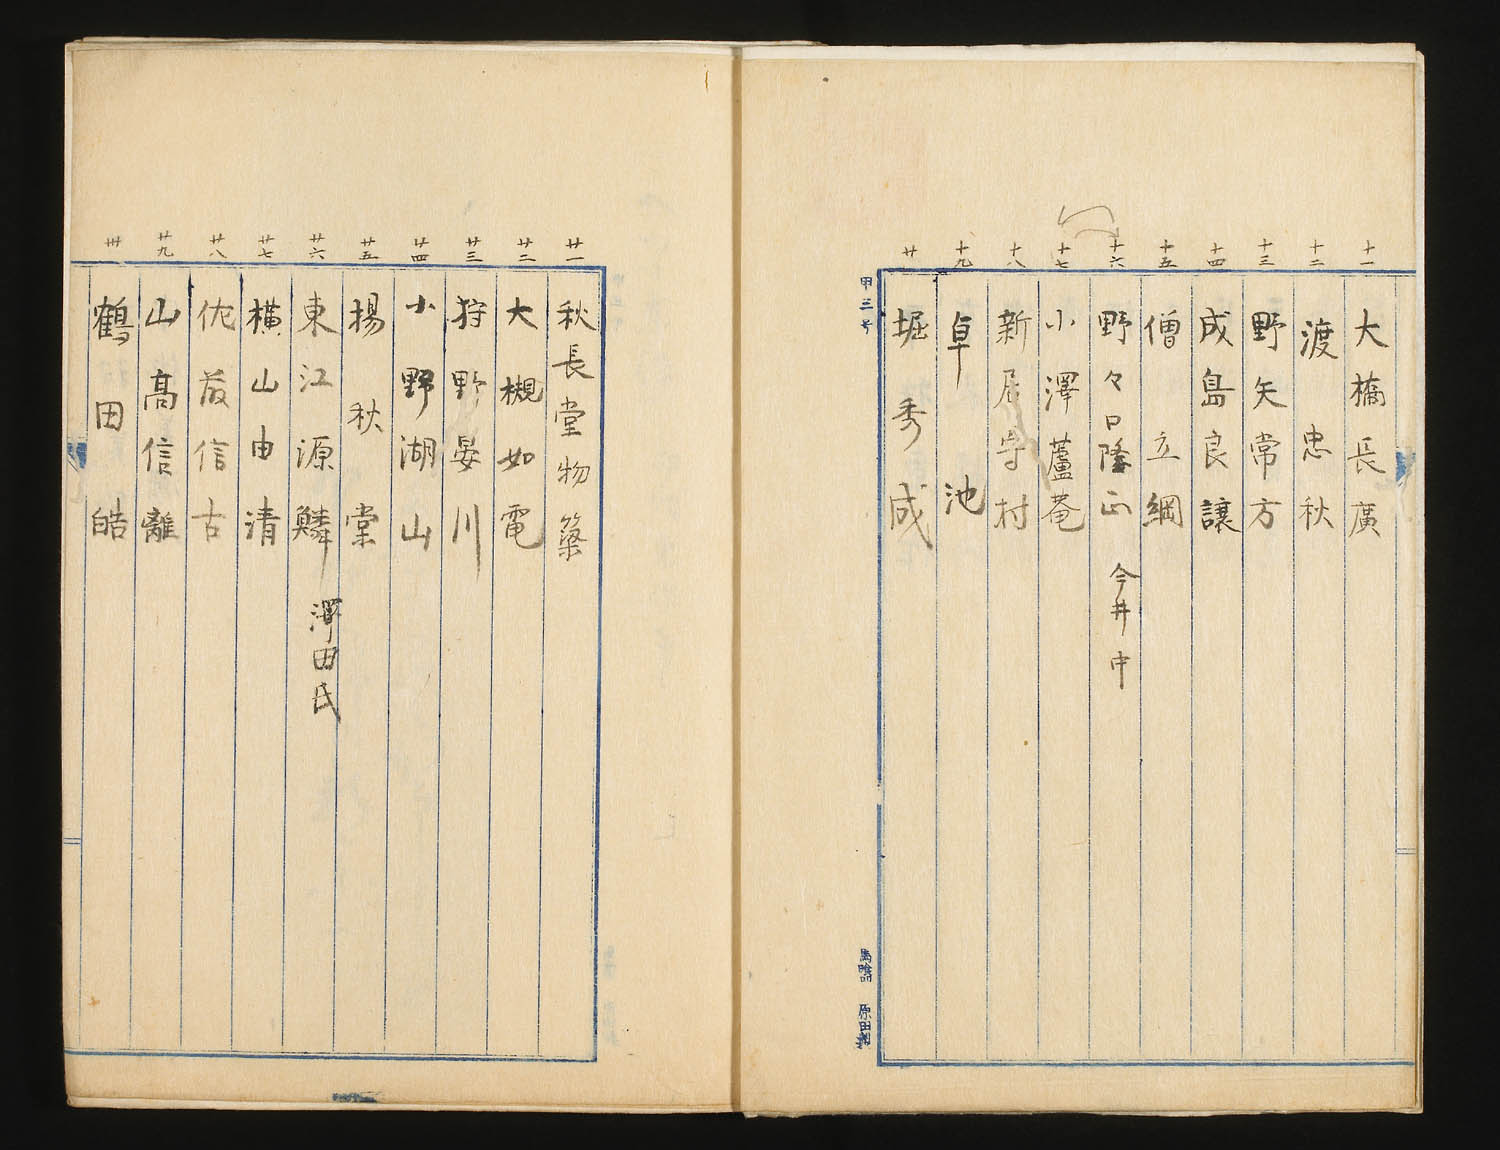 十一 大橋長廣
十二 渡忠秋
十三 野矢常方
十四 成島良讓
十五 僧立綱
十六 野々口隆正 今井中
十七 小澤蘆菴
十八 新居守村
十九 卓池
廿 堀秀成
甲三号
原田製
廿一 秋長堂物簗
廿二 大槻如電
廿三 狩野晏川
廿四 小野湖山
廿五 揚秋棠
廿六 東江源鱗 澤田氏
廿七 横山由清
廿八 佐藤信古
廿九 山高信離
卅 鶴田皓